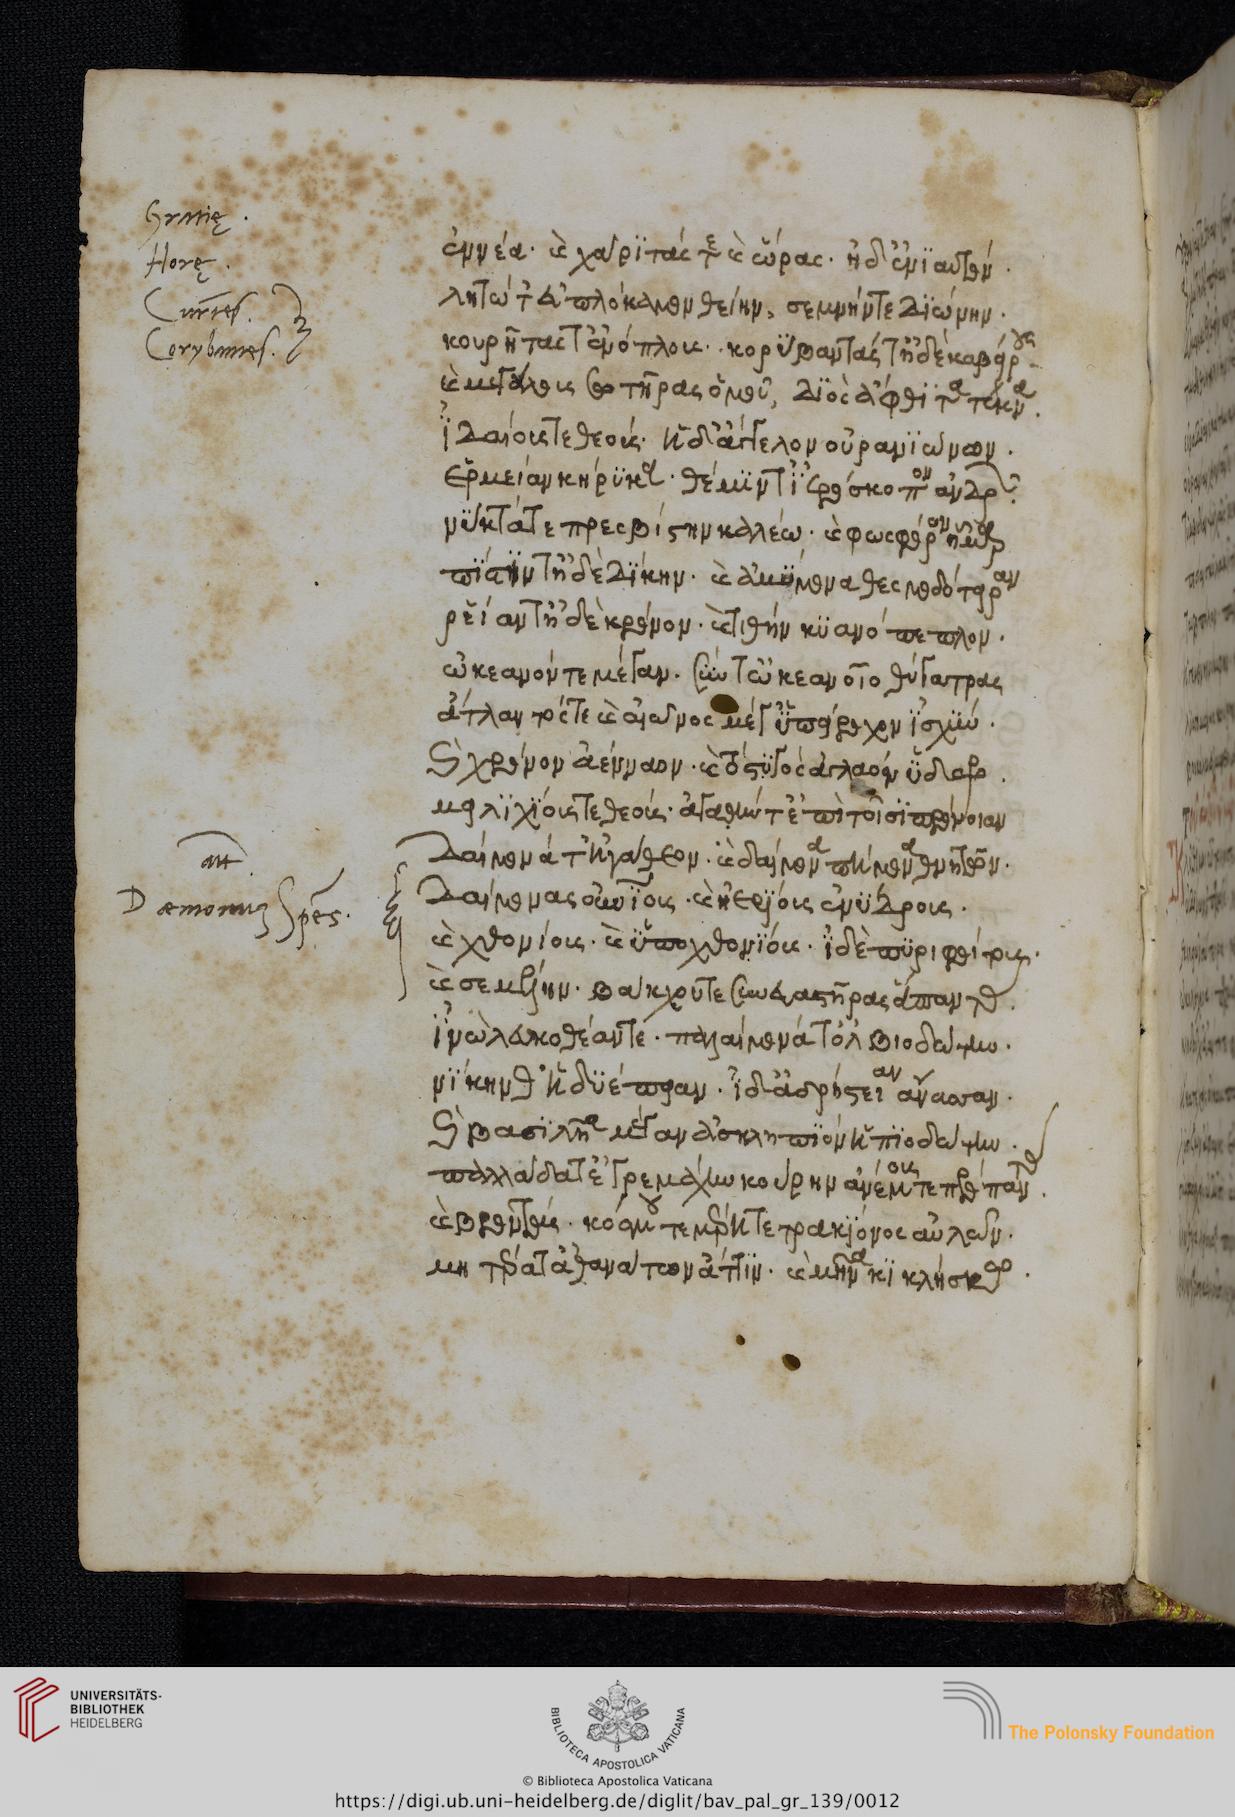 Gratię.
Horę.
Curetes.
Corybantes.
ἐννέα· καὶ χάριτάς τε καὶ ὥρας· ἠδ' ἐνιαυτόν.
λητώ τ' εὐπλόκαμον θείην, σεμνήν τε διώνην.
κουρῆτας τ' ἐνόπλους· κορύβαντάς τ' ἠδὲ καβείρους
καὶ μεγάλους σωτῆρας ὁμοῦ, διὸς ἄφθιτα τέκνα.
ἰδαίους τε θεούς· ἠδ' ἄγγελον οὐρανιώνων.
ἑρμείαν κήρυκα· θέμιν τ' ἱεροσκόπον ἀνδρῶν
νύκτά τε πρεσβίστην καλέω· καὶ φωσφόρον ἦμαρ
πίστιν τ' ἠδὲ δίκην· καὶ ἀμύμονα θεσμοδότειραν
ῥείαν τ' ἠδὲ κρόνον· καὶ τιθὴν κυανόπεπλον.
ὠκεανόν τε μέγαν· σύν τ' ὠκεανοῖο θύγατρας
ἄτλαντός τε καὶ αἰῶνος μέγ' ὑπείροχον ἰσχύν.
καὶ χρόνον ἀένναον· καὶ τὸ στυγὸς ἀγλαὸν ὕδωρ.
μειλιχίους τε θεούς· ἀγαθήν τ' ἐπὶ τοῖσι πρόνοιαν
δαίμονά τ' ἠγάθεον· καὶ δαίμονα πήμονα θνητῶν.
Dæmonum Spes.
δαίμονας οὐνίους· καὶ ἠερίους ἐνύδρους.
καὶ χθονίους· καὶ ὑποχθονίους· ἰδὲ πυριφοίτους.
καὶ σεμέλην· βάκχου τε συνευαστῆρας ἅπαντας.
ἰνὼ λευκοθέαν τε· παλαίμονά τ' ὀλβιοδώτην.
νίκην θ' ἡδυέπειαν· ἰδ' ἀδρήστειαν ἄνασσαν.
καὶ βασιλῆα μέγαν ἀσκληπιὸν ἠπιοδώτην.
παλλάδα τ' ἐγρεμάχην κούρην ἀνέμους τε πρόπαντας.
καὶ βροντάς· κόσμου τε μέρη τετρακίονος αὐλῶν.
μητέρα τ' ἀθανάτων ἄττιν· καὶ μῆνα κικλήσκω.
UNIVERSITÄTS-
BIBLIOTHEK
HEIDELBERG
BIBLIOTECA APOSTOLICA VATICANA
The Polonsky Foundation
© Biblioteca Apostolica Vaticana
https://digi.ub.uni-heidelberg.de/diglit/bav_pal_gr_139/0012